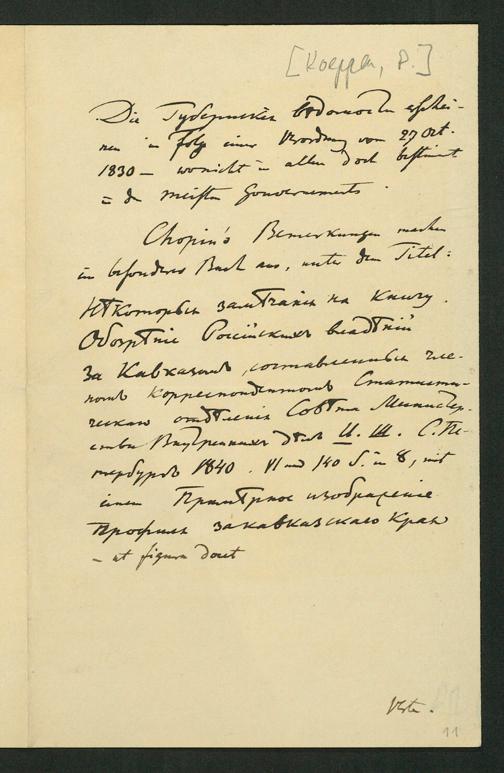 [Koeppen, P.]
Die Губернскія вѣдомости erschei-
nen in Folge einer Verordnung vom 27 Oct.
1830 – wo nicht in allen doch bestimmt
in den meisten Gouvernements.
Chopin's Bemerkungen machen
ein besonderes Buch aus, unter dem Titel:
Нѣкоторыя замѣчанія на книгу
Обозрѣніе Россійскихъ владѣній
За Кавказомъ, составленныя чле-
номъ корреспондентомъ Статисти-
ческаго отдѣленія Совѣта Министер-
ства Внутреннихъ дѣлъ И. Ш. С. Пе-
тербургъ 1840. VI und 140 S. in 8, mit
einem Примѣрное изображеніе
Профиля Закавказскаго Края
– ut figura docet
Verte.
11